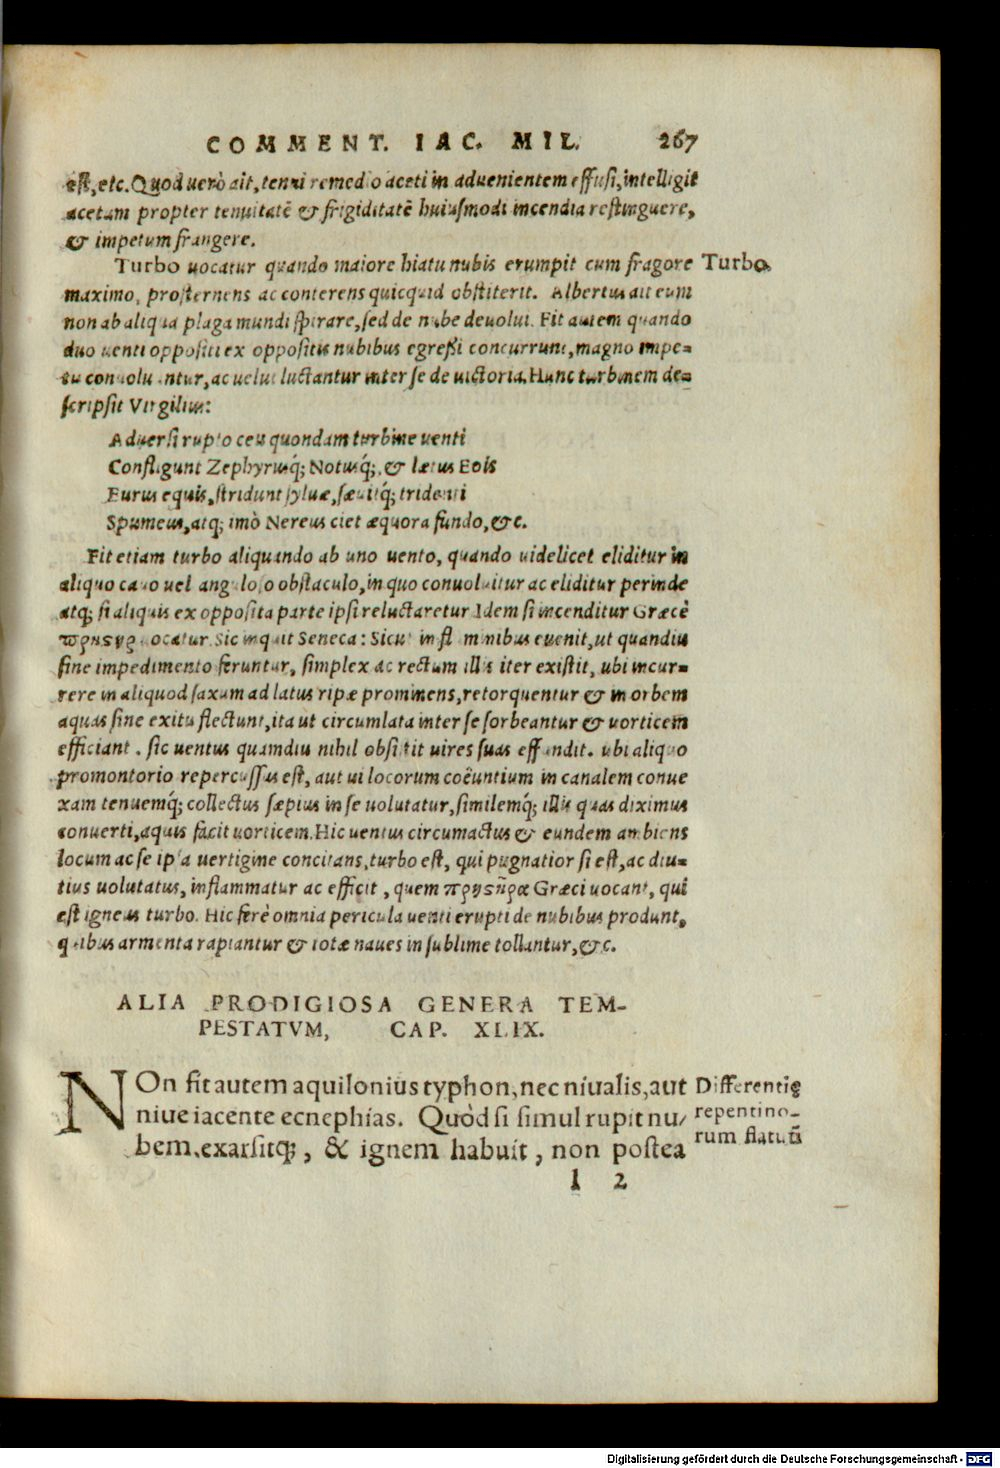 COMMENT. IAC. MIL. 267
est, etc. Quod uerò ait, tenui remedio aceti in aduenientem effusi, intelligit
acetum propter tenuitatē & frigiditatē huiusmodi incendia restinguere,
& impetum frangere.
Turbo uocatur quando maiore hiatu nubis erumpit cum fragore
Turbo.
maximo, prosternens ac conterens quicquid obstiterit. Albertus ait eum
non ab aliqua plaga mundi spirare, sed de nube deuolui. Fit autem quando
duo uenti oppositi ex oppositis nubibus egreßi concurrunt, magno impe=
tu conuoluuntur, ac uelut luctantur inter se de uictoria. Hunc turbinem de=
scripsit Virgilius:
Aduersi rupto ceu quondam turbine uenti
Confligunt Zephyrusq́; Notusq́;, & lætus Eois
Eurus equis, stridunt syluæ, sæuitq́; tridenti
Spumeus, atq; imò Nereus ciet æquora fundo, &c.
Fit etiam turbo aliquando ab uno uento, quando uidelicet eliditur in
aliquo cauo uel anguloso obstaculo, in quo conuoluitur ac eliditur perinde
atq; si aliquis ex opposita parte ipsi reluctaretur. Idem si incenditur Græcè
uocatur. Sic inquit Seneca: Sicut in fluminibus euenit, ut quandiu
sine impedimento feruntur, simplex ac rectum illis iter existit, ubi incur=
rere in aliquod saxum ad latus ripæ prominens, retorquentur & in orbem
aquas sine exitu flectunt, ita ut circumlata inter se sorbeantur & uorticem
efficiant. sic uentus quamdiu nihil obsistit uires suas effundit. ubi aliquo
promontorio repercussus est, aut ui locorum coëuntium in canalem conue
xam tenuemq́; collectus sæpius in se uolutatur, similemq́; illis quas diximus
conuerti, aquis facit uorticem. Hic uentus circumactus & eundem ambiens
locum ac se ipsa uertigine concitans, turbo est, qui pugnatior si est, ac diu=
tius uolutatus, inflammatur ac efficit, quem Græci uocant, qui
est igneus turbo. Hic ferè omnia pericula uenti erupti de nubibus produnt,
quibus armenta rapiantur & totæ naues in sublime tollantur, &c.
ALIA PRODIGIOSA GENERA TEM-
PESTATVM, CAP. XLIX.
NOn fit autem aquilonius typhon, nec niualis, aut
niue iacente ecnephias. Quòd si simul rupit nu/
bem, exarsitq;, & ignem habuit, non postea
Differentię
repentino-
rum flatuū
l 2
Digitalisierung gefördert durch die Deutsche Forschungsgemeinschaft - DFG